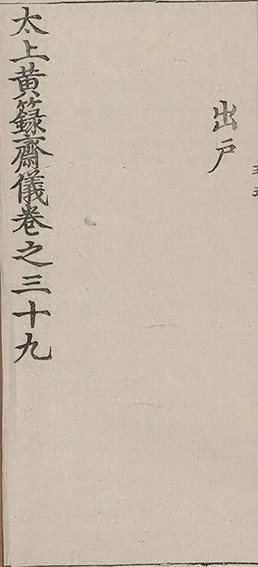 出戶
太上黃籙齋儀卷之三十九